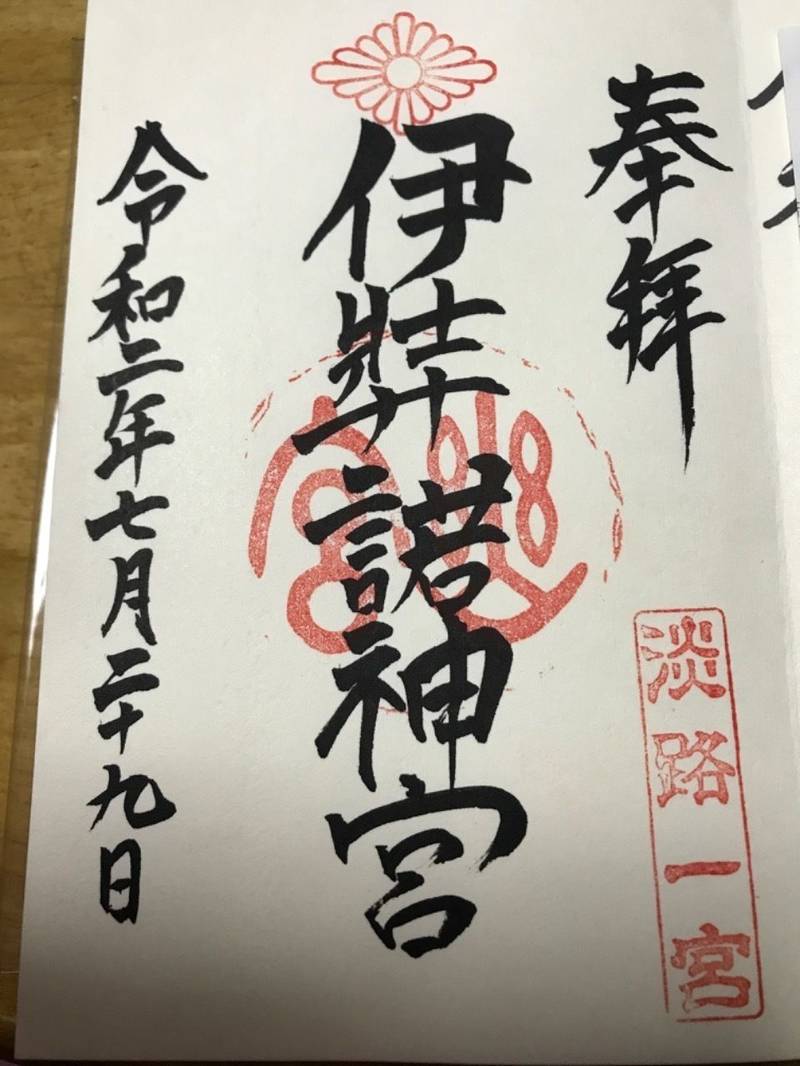 奉拝
淡路一宮
伊弉諾神宮
令和二年七月二十九日